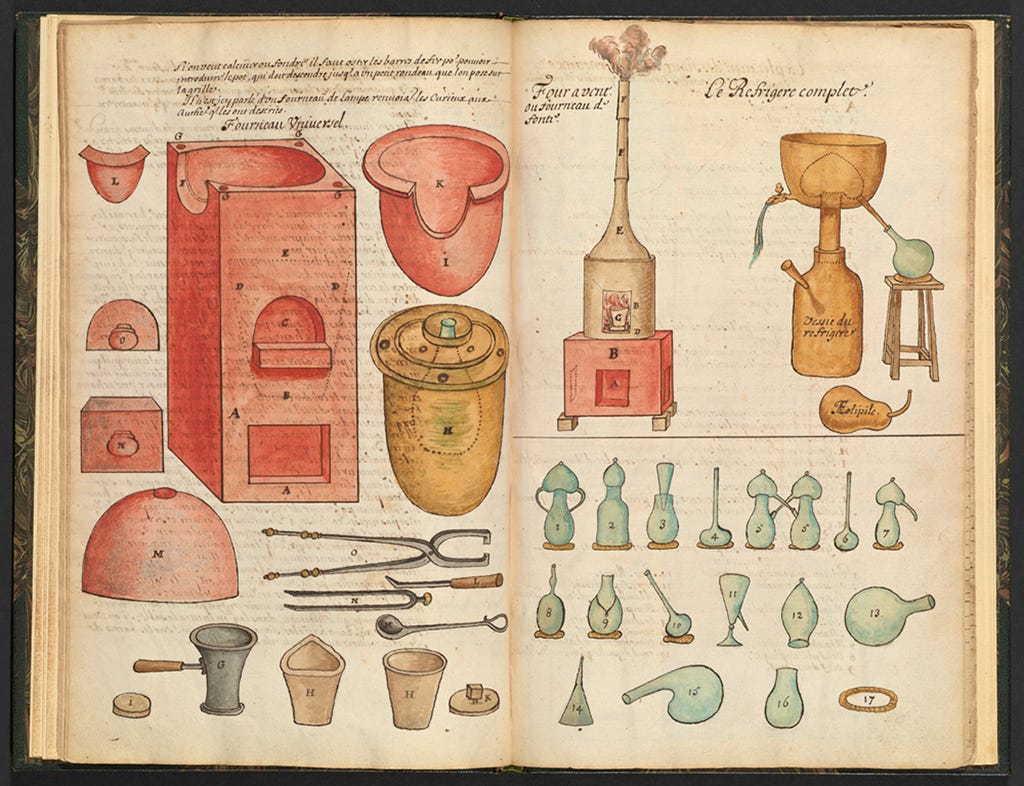 Si on veut calciner ou fondre il faut oster les barres de fer po.r pouvoir
introduire le pot, qui doit descendre jusq'a un petit rondeau que l'on pose sur
la grille.
parlé d'un fourneau de lampe renvoiāt les Curieux aux
Authe.rs q.i les ont descrits
Fourneau Vniversel.
G
G
L
F
K
G
G
I
E
D
D
C
O
B
H
A
N
A
M
O
L
N
M
G
H
H
I
K
Four a vent.
ou fourneau d.e
fonte.
Le Refrigere complet.
F
F
E
B
G
D
B
A
Vessie du
refrigere
Æolipile.
1
2
3
4
5
5
6
7
8
9
10
11
12
13
14
15
16
17